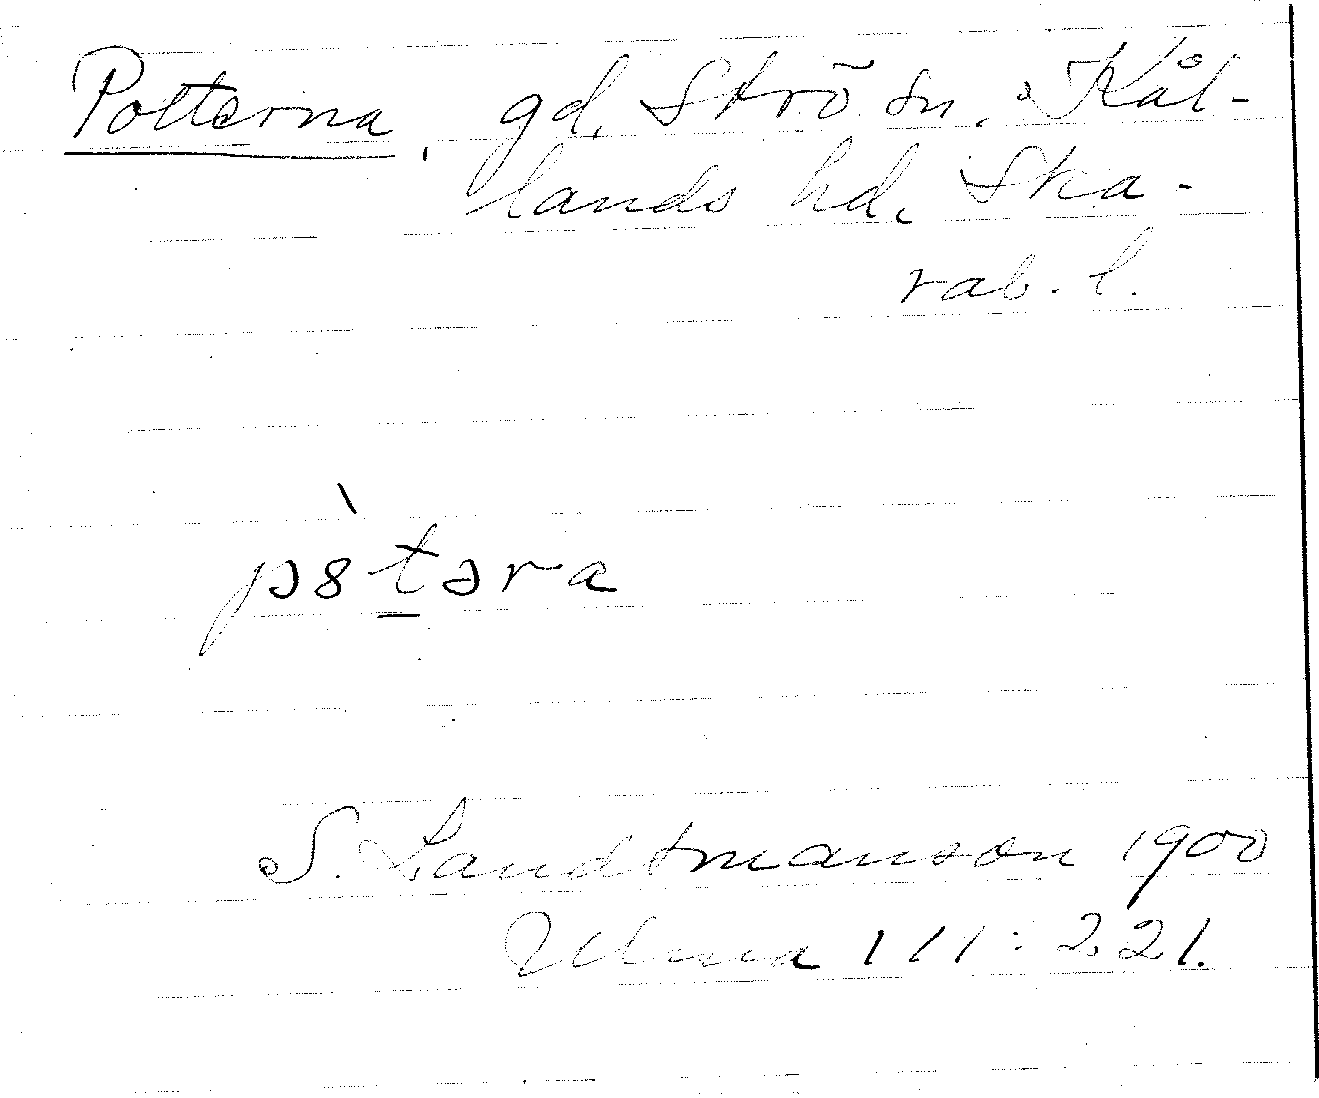 Potterna, gd. Strö sn, Kål-
lands hd, Ska-
rab. l.
pə8̀t̠əra
S. Landtmanson 1900
Ulma 111:221.